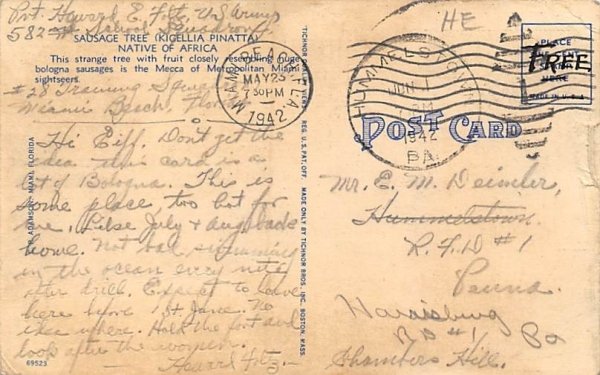 Pvt. Howard E. Fitz, U.S. Army
582nd
SAUSAGE TREE (KIGELLIA PINATTA)
NATIVE OF AFRICA
This strange tree with fruit closely resembling huge
bologna sausages is the Mecca of Metropolitan Miami
sightseers.
#28 Training
Miami Beach, Florida
Hi Eiff. Don't get the
idea this card is a
lot of Bologna. This is
some place, too hot for
me, like July & Aug. back
home. Not bad swimming
in the ocean every nite
after drill. Expect to leave
here before 1st June. No
idea where. Hold the fort and
look after the women.
Howard Fitz
69523
ADAMSON, MIAMI, FLORIDA
TICHNOR QUALITY VIEWS REG. U.S. PAT. OFF. MADE ONLY BY TICHNOR BROS. INC. BOSTON, MASS.
MIAMI BEACH, FLA.
MAY 25
7 30 PM
1942
HE
PLACE
HERE
MADE IN U.S.A.
FREE
HUMMELSTOWN
JUN 1
1942
PA.
POST CARD
Mr. E. M. Deimler,
Hummelstown
R. F. D #1
Penna.
Harrisburg
RD #1 Pa
Chambers Hill.